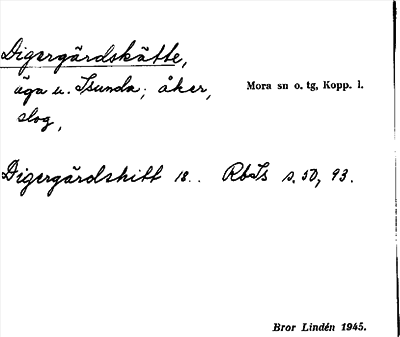 Digergärdskätte,
äga u. Isunda; åker,
Mora sn o. tg, Kopp. l.
slog,
Digergärdskitt 18.. RbIs s. 50, 93.
Bror Lindén 1945.